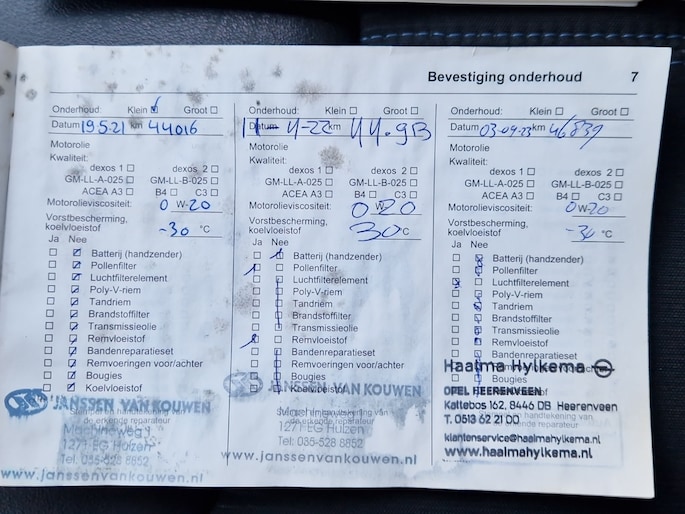 Bevestiging onderhoud 7
Onderhoud: Klein Groot
Datum 19.5.21 km 44016
Motorolie
Kwaliteit:
dexos 1 dexos 2
GM-LL-A-025 GM-LL-B-025
ACEA A3 B4 C3
Motorolieviscositeit: 0 W-20
Vorstbescherming,
koelvloeistof -30 °C
Ja Nee
Batterij (handzender)
Pollenfilter
Luchtfilterelement
Poly-V-riem
Tandriem
Brandstoffilter
Transmissieolie
Remvloeistof
Bandenreparatieset
Remvoeringen voor/achter
Bougies
Koelvloeistof
JANSSEN VAN KOUWEN
Stempel en handtekening van
de erkende reparateur
1271 EG Huizen
Tel: 085-528 8852
www.janssenvankouwen.nl
Onderhoud: Klein Groot
Datum 4-22 km
Motorolie
Kwaliteit:
dexos 1 dexos 2
GM-LL-A-025 GM-LL-B-025
ACEA A3 B4 C3
Motorolieviscositeit: 0 W-20
Vorstbescherming,
koelvloeistof 30 °C
Ja Nee
Batterij (handzender)
Pollenfilter
Luchtfilterelement
Poly-V-riem
Tandriem
Brandstoffilter
Transmissieolie
Remvloeistof
Bandenreparatieset
Remvoeringen voor/achter
Bougies
Koelvloeistof
JANSSEN VAN KOUWEN
Stempel en handtekening van
de erkende reparateur
1271 EG Huizen
Tel: 085-528 8852
www.janssenvankouwen.nl
Onderhoud: Klein Groot
Datum 03-04-23 km 46839
Motorolie
Kwaliteit:
dexos 1 dexos 2
GM-LL-A-025 GM-LL-B-025
ACEA A3 B4 C3
Motorolieviscositeit: 0 W-20
Vorstbescherming,
koelvloeistof °C
Ja Nee
Batterij (handzender)
Pollenfilter
Luchtfilterelement
Poly-V-riem
Tandriem
Brandstoffilter
Transmissieolie
Remvloeistof
Bandenreparatieset
Haaima Hylkema
OPEL HEERENVEEN
Kattebos 162, 8446 DB Heerenveen
T. 0513 62 21 00
klantenservice@haaimahylkema.nl
www.haaimahylkema.nl